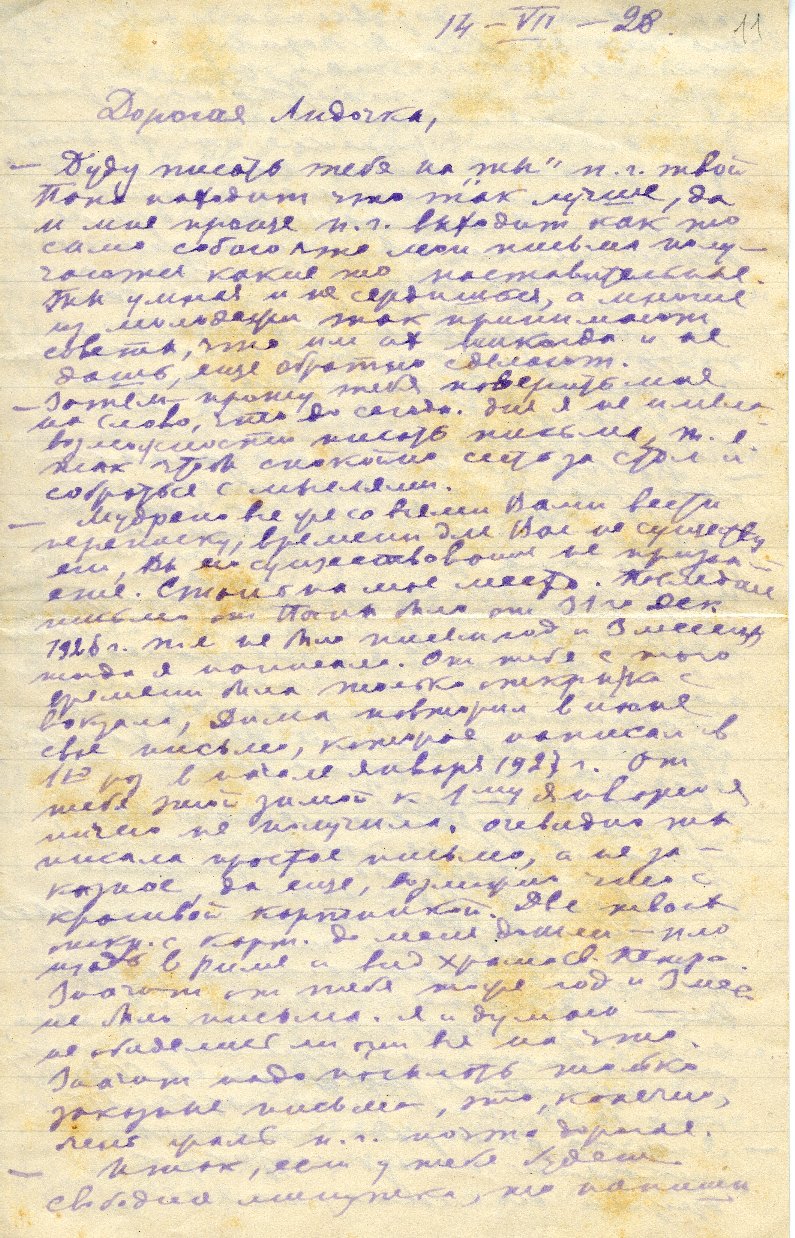 14 – VII – 28. 11
Дорогая Лидочка,
— Буду писать тебе на „ты" п. ч. твой
Папа находит что так лучше, да
и мне проще п. ч. выходит как то
само собою что мои письма полу-
чаются какие то наставительные.
Ты умная и не сердишься, а многие
из молодежи так принимают
советы, что им их никогда и не
дашь, еще обратно сделают.
— Затем прошу тебя поверить мне
на слово, что до сегодн. дня я не имела
возможности писать письма, т. е.
так чтоб спокойно сесть за стол и
собраться с мыслями.
— Мудрено все же со всеми Вами вести
переписку, времени для Вас не существу
ет, Вы его существование не призна
ете. Стань на мое место. Последнее
письмо от Папы было от 31го Дек
1926 г. т.е. не было писем год и 3 месяца
тогда я написала. От тебя с того
времени была только открытка с
вокзала, Дима повторил в июне
свое письмо, которое написал в
1ый раз в начале января 1927 г. От
тебя этой зимой к 1му января я
ничего не получила. Очевидно ты
писала простое письмо, а не за-
казное, да еще, возможно что с
красивой картинкой. Две твоих
откр. с карт. до меня дошли – пло
щадь в Риме и вид храма св. Петра.
Значит от тебя тоже год и 3 мес
не было письма. Я и думаю —
не обиделись ли они все на что.
Значит надо посылать только
заказные письма, это, конечно,
п. ч. почта дорогая.
— Итак, если у тебя будет
свободная минутка, то напиши